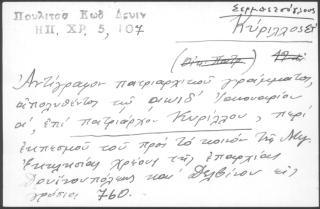 Πουλίτσα Κωδ Δελιν
ΗΠ. ΧΡ. 5, 107
Κύριλλος
(Οἰκ. Πατρ.)
Ἀντίγραφον πατριαρχικοῦ γράμματος,
ἀπολυθέντος τῇ αωιδʹ Ἰανουαρίου
αʹ, ἐπὶ πατριάρχου Κυρίλλου, περὶ
ἐκπεσμοῦ τοῦ πρὸς τὸ κοινὸν τῆς Μεγ.
Ἐκκλησίας χρέους τῆς ἐπαρχίας
Δρυϊνουπόλεως καὶ Δελβίνου εἰς
γρόσια 760.